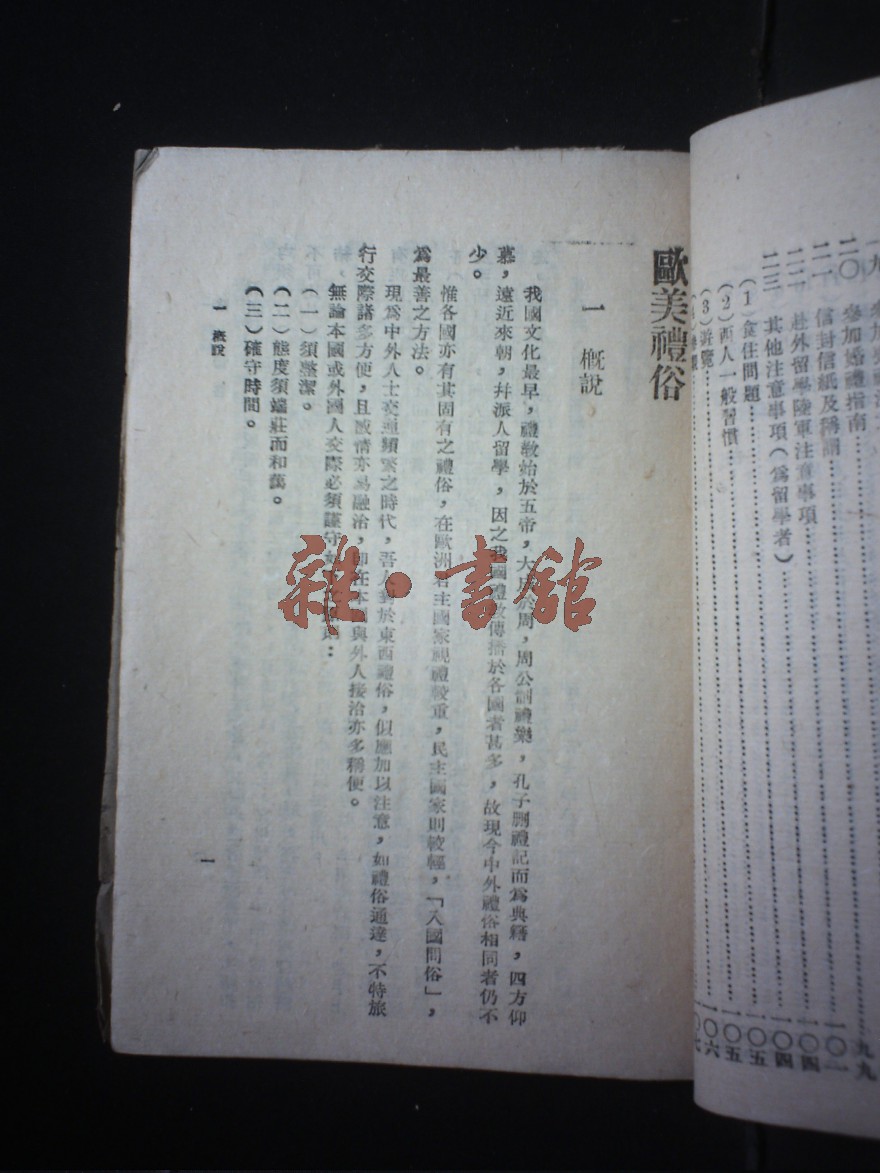 二〇 參加婚禮指南……九九
二一 信封信紙及稱謂……
二二 赴外留學陸軍注意事項……一〇四
二三 其他注意事項(為留學者)……一〇四
(1)食住問題……一〇五
(2)西人一般習慣……一〇五
(3)遊覽……一〇六
歐美禮俗
一 概說
我國文化最早，禮教始於五帝，大成於周，周公制禮樂，孔子刪禮記而爲典籍，四方仰
慕，遠近來朝，幷派人留學，因之我國禮敎傳播於各國者甚多，故現今中外禮俗相同者仍不
少。
惟各國亦有其固有之禮俗，在歐洲君主國家視禮較重，民主國家則較輕，「入國問俗」，
爲最善之方法。
現爲中外人士交通頻繁之時代，吾人對於東西禮俗，似應加以注意，如禮俗通達，不特旅
行交際諸多方便，且感情亦易融洽，卽在本國與外人接洽亦多稱便。
無論本國或外國人交際必須謹守如：
(一)須整潔。
(二)態度須端莊而和藹。
(三)確守時間。
一 概說
一
雜·書館